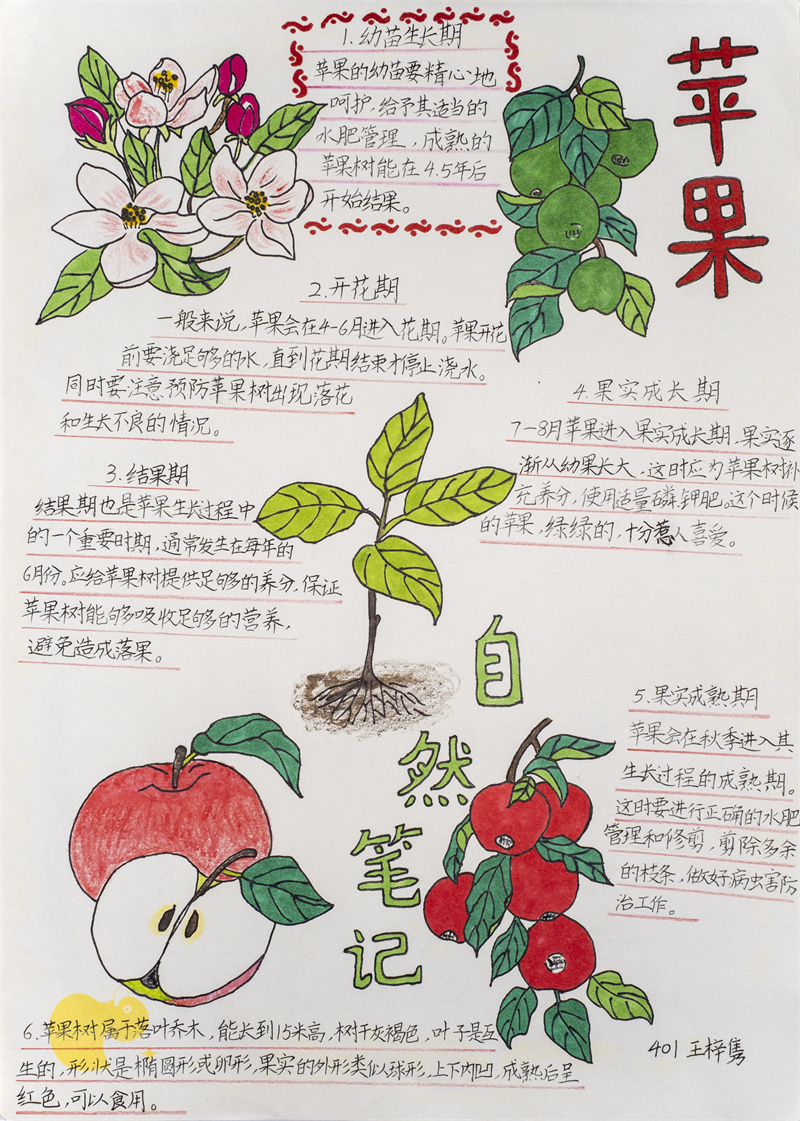 苹果
1.幼苗生长期
苹果的幼苗要精心地
呵护.给予其适当的
水肥管理，成熟的
苹果树能在4.5年后
开始结果。
2.开花期
一般来说，苹果会在4-6月进入花期。苹果开花
前要浇足够多的水，直到花期结束才停止浇水。
同时要注意预防苹果树出现落花
和生长不良的情况。
3.结果期
结果期也是苹果生长过程中
的一个重要时期，通常发生在每年的
6月份。应给苹果树提供足够的养分，保证
苹果树能够吸收足够多的营养，
避免造成落果。
4.果实成长期
7-8月苹果进入果实成长期，果实逐
渐从幼果长大，这时应为苹果树补
充养分，使用适量磷、钾肥。这个时候
的苹果，绿绿的，十分惹人喜爱。
自
然
笔
记
5.果实成熟期
苹果会在秋季进入其
生长过程的成熟期。
这时要进行正确的水肥
管理和修剪，剪除多余
的枝条，做好病虫害防
治工作。
6.苹果树属于落叶乔木，能长到15米高，树干灰褐色，叶子是互
生的，形状是椭圆形或卵形，果实的外形类似球形，上下内凹，成熟后呈
红色，可以食用。
401 王梓隽